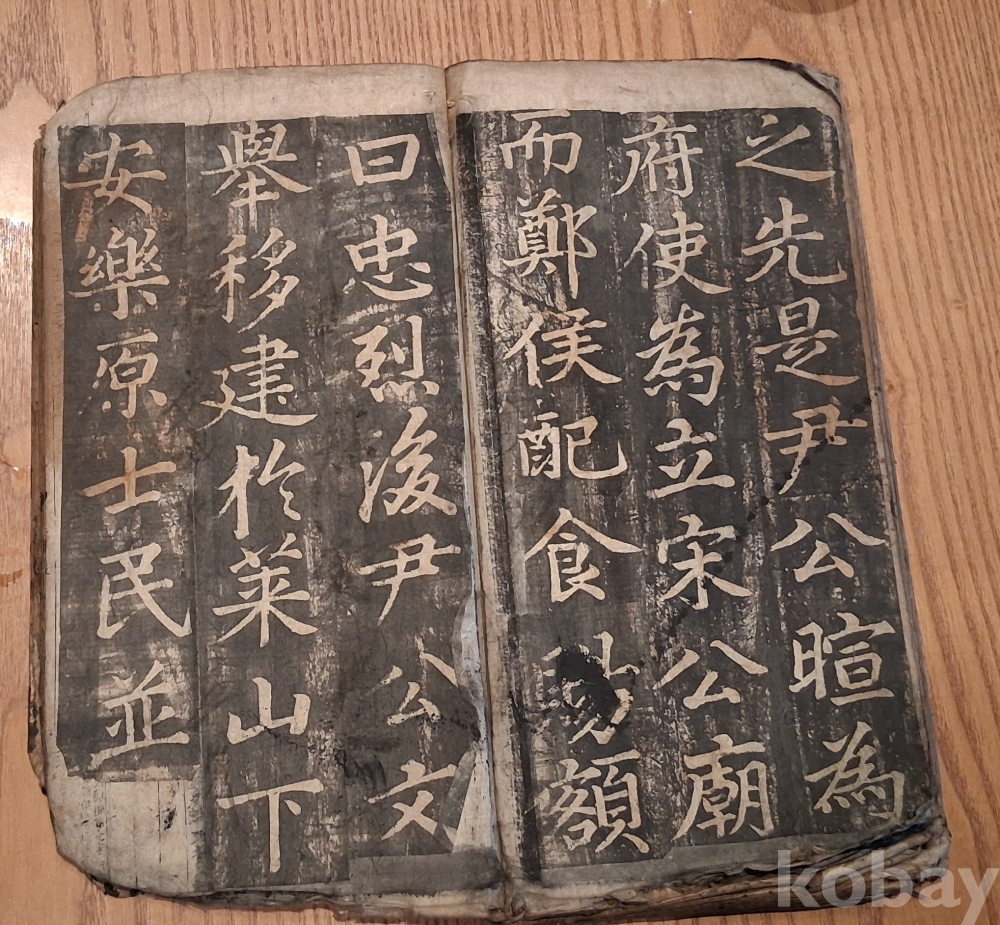 之先是尹公暄為
府使為立宋公廟
而鄭侯配食 額
曰忠烈後尹公文
舉移建於萊山下
安樂原士民並
kobay